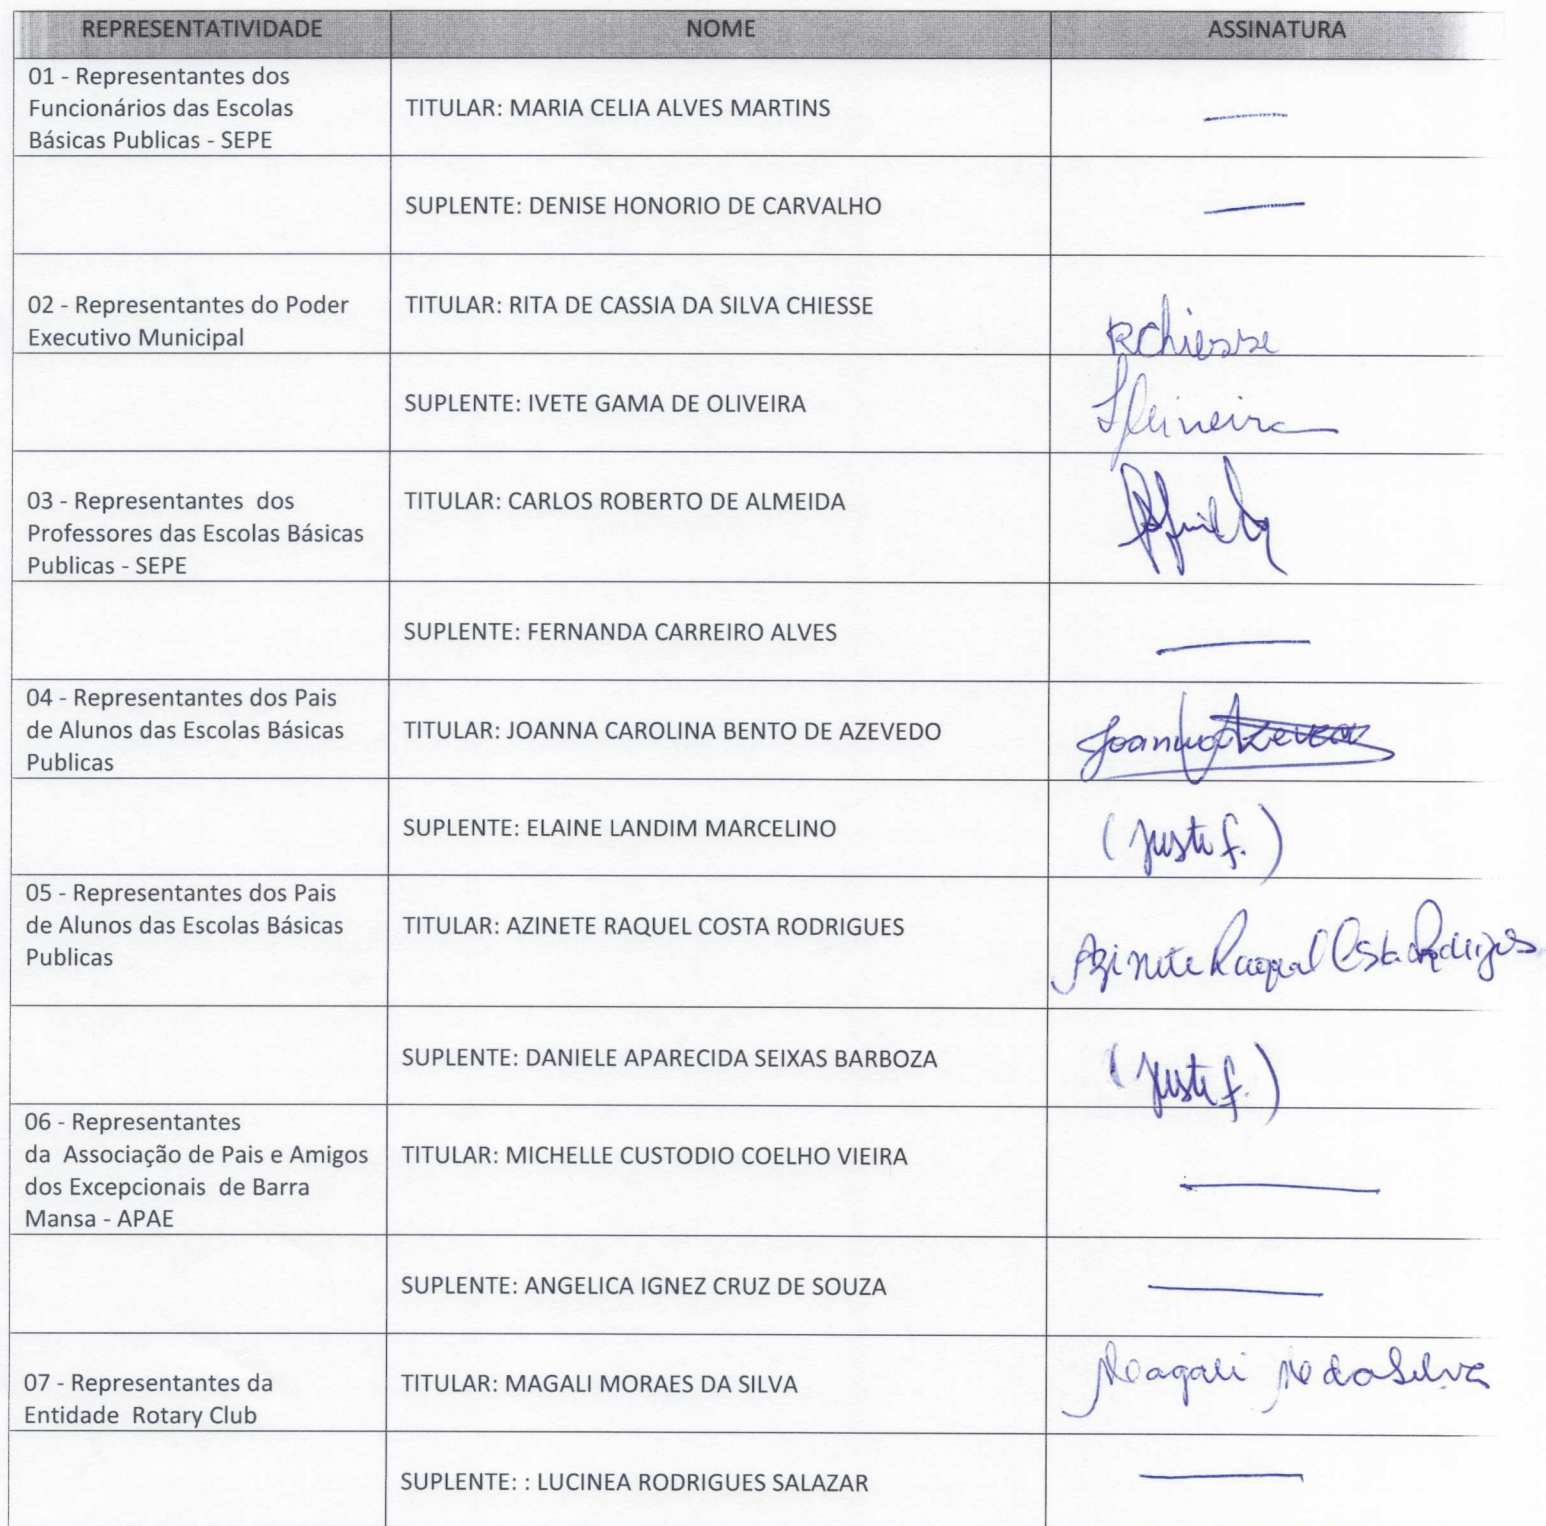 REPRESENTATIVIDADE NOME ASSINATURA
01 - Representantes dos
Funcionários das Escolas
Básicas Publicas - SEPE
TITULAR: MARIA CELIA ALVES MARTINS
SUPLENTE: DENISE HONORIO DE CARVALHO
02 - Representantes do Poder
Executivo Municipal
TITULAR: RITA DE CASSIA DA SILVA CHIESSE
RChiesse
SUPLENTE: IVETE GAMA DE OLIVEIRA
03 - Representantes dos
Professores das Escolas Básicas
Publicas - SEPE
TITULAR: CARLOS ROBERTO DE ALMEIDA
SUPLENTE: FERNANDA CARREIRO ALVES
04 - Representantes dos Pais
de Alunos das Escolas Básicas
Publicas
TITULAR: JOANNA CAROLINA BENTO DE AZEVEDO
SUPLENTE: ELAINE LANDIM MARCELINO
(justif.)
05 - Representantes dos Pais
de Alunos das Escolas Básicas
Publicas
TITULAR: AZINETE RAQUEL COSTA RODRIGUES
Azinete Raquel Costa Rodrigues
SUPLENTE: DANIELE APARECIDA SEIXAS BARBOZA
(justif.)
06 - Representantes
da Associação de Pais e Amigos
dos Excepcionais de Barra
Mansa - APAE
TITULAR: MICHELLE CUSTODIO COELHO VIEIRA
SUPLENTE: ANGELICA IGNEZ CRUZ DE SOUZA
07 - Representantes da
Entidade Rotary Club
TITULAR: MAGALI MORAES DA SILVA
Magali M da Silva
SUPLENTE: : LUCINEA RODRIGUES SALAZAR